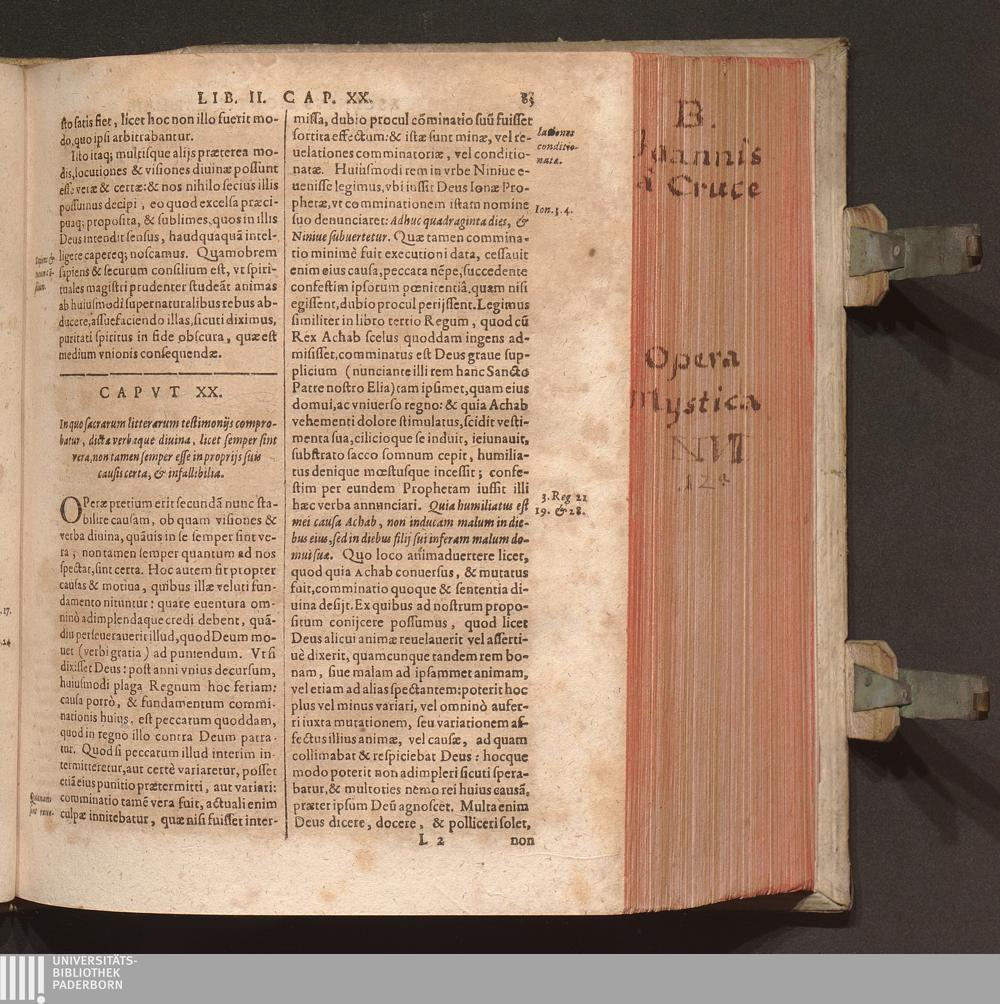 LIB. II. CAP. XX. 83
sto satis fiet, licet hoc non illo fuerit mo-
do, quo ipsi arbitrabantur.
Isto itaq; multisque alijs præterea mo-
dis, locutiones & visiones diuinæ possunt
esse veræ & certæ: & nos nihilo secius illis
possumus decipi, eo quod excelsa præci-
puaq; proposita, & sublimes, quos in illis
Deus intendit sensus, haudquaquã intel-
ligere capereq; noscamus. Quamobrem
sapiens & securum consilium est, vt spiri-
tuales magistri prudenter studeãt animas
ab huiusmodi supernaturalibus rebus ab-
ducere, assuefaciendo illas, sicuti diximus,
puritati spiritus in fide obscura, quæ est
medium vnionis consequendæ.
CAPVT XX.
In quo sacrarum litterarum testimonijs compro-
batur, dicta verbaque diuina, licet semper sint
vera, non tamen semper esse in proprijs suis
causis certa, & infallibilia.
OPeræ pretium erit secundã nunc sta-
bilire causam, ob quam visiones &
verba diuina, quãuis in se semper sint ve-
ra, non tamen semper quantum ad nos
spectat, sint certa. Hoc autem fit propter
causas & motiua, quibus illæ veluti fun-
damento nituntur: quare euentura om-
ninò adimplendaque credi debent, quã-
diu perseuerauerit illud, quod Deum mo-
uet (verbi gratia) ad puniendum. Vt si
dixisset Deus: post anni vnius decursum,
huiusmodi plaga Regnum hoc feriam:
causa porrò, & fundamentum commi-
nationis huius, est peccatum quoddam,
quod in regno illo contra Deum patra-
tur. Quod si peccatum illud interim in-
termitteretur, aut certè variaretur, posset
etiã eius punitio prætermitti, aut variari:
comminatio tamẽ vera fuit, actuali enim
culpæ innitebatur, quæ nisi fuisset inter-
Quomodo
sint veræ.
17.
24
missa, dubio procul cõminatio suũ fuisset
sortita effectum: & istæ sunt minæ, vel re-
uelationes comminatoriæ, vel conditio-
natæ. Huiusmodi rem in vrbe Niniue e-
uenisse legimus, vbi iussit Deus Ionæ Pro-
phetæ, vt comminationem istam nomine
suo denunciaret: Adhuc quadraginta dies, &
Niniue subuertetur. Quæ tamen commina-
tio minimè fuit executioni data, cessauit
enim eius causa, peccata nẽpe, succedente
confestim ipsorum pœnitentiâ, quam nisi
egissent, dubio procul perijssent. Legimus
similiter in libro tertio Regum, quod cũ
Rex Achab scelus quoddam ingens ad-
misisset, comminatus est Deus graue sup-
plicium (nunciante illi rem hanc Sancto
Patre nostro Elia) tam ipsimet, quam eius
domui, ac vniuerso regno: & quia Achab
vehementi dolore stimulatus, scidit vesti-
menta sua, cilicioque se induit, ieiunauit,
substrato sacco somnum cepit, humilia-
tus denique mœstusque incessit; confe-
stim per eundem Prophetam iussit illi
hæc verba annunciari. Quia humiliatus est
mei causa Achab, non inducam malum in die-
bus eius, sed in diebus filij sui inferam malum do-
mui suæ. Quo loco animaduertere licet,
quod quia Achab conuersus, & mutatus
fuit, comminatio quoque & sententia di-
uina desijt. Ex quibus ad nostrum propo-
situm conijcere possumus, quod licet
Deus alicui animæ reuelauerit vel asserti-
uè dixerit, quamcunque tandem rem bo-
nam, siue malam ad ipsammet animam,
vel etiam ad alias spectantem: poterit hoc
plus vel minus variari, vel omninò aufer-
ri iuxta mutationem, seu variationem af-
fectus illius animæ, vel causæ, ad quam
collimabat & respiciebat Deus: hocque
modo poterit non adimpleri sicuti spera-
batur, & multoties nemo rei huius causã,
præter ipsum Deũ agnoscet. Multa enim
Deus dicere, docere, & polliceri solet,
conditio-
natæ.
Ion. 3. 4.
3. Reg 21
19. & 28.
L 2 non
B.
Joannis
á Cruce
Opera
Mystica
UNIVERSITÄTS-
BIBLIOTHEK
PADERBORN